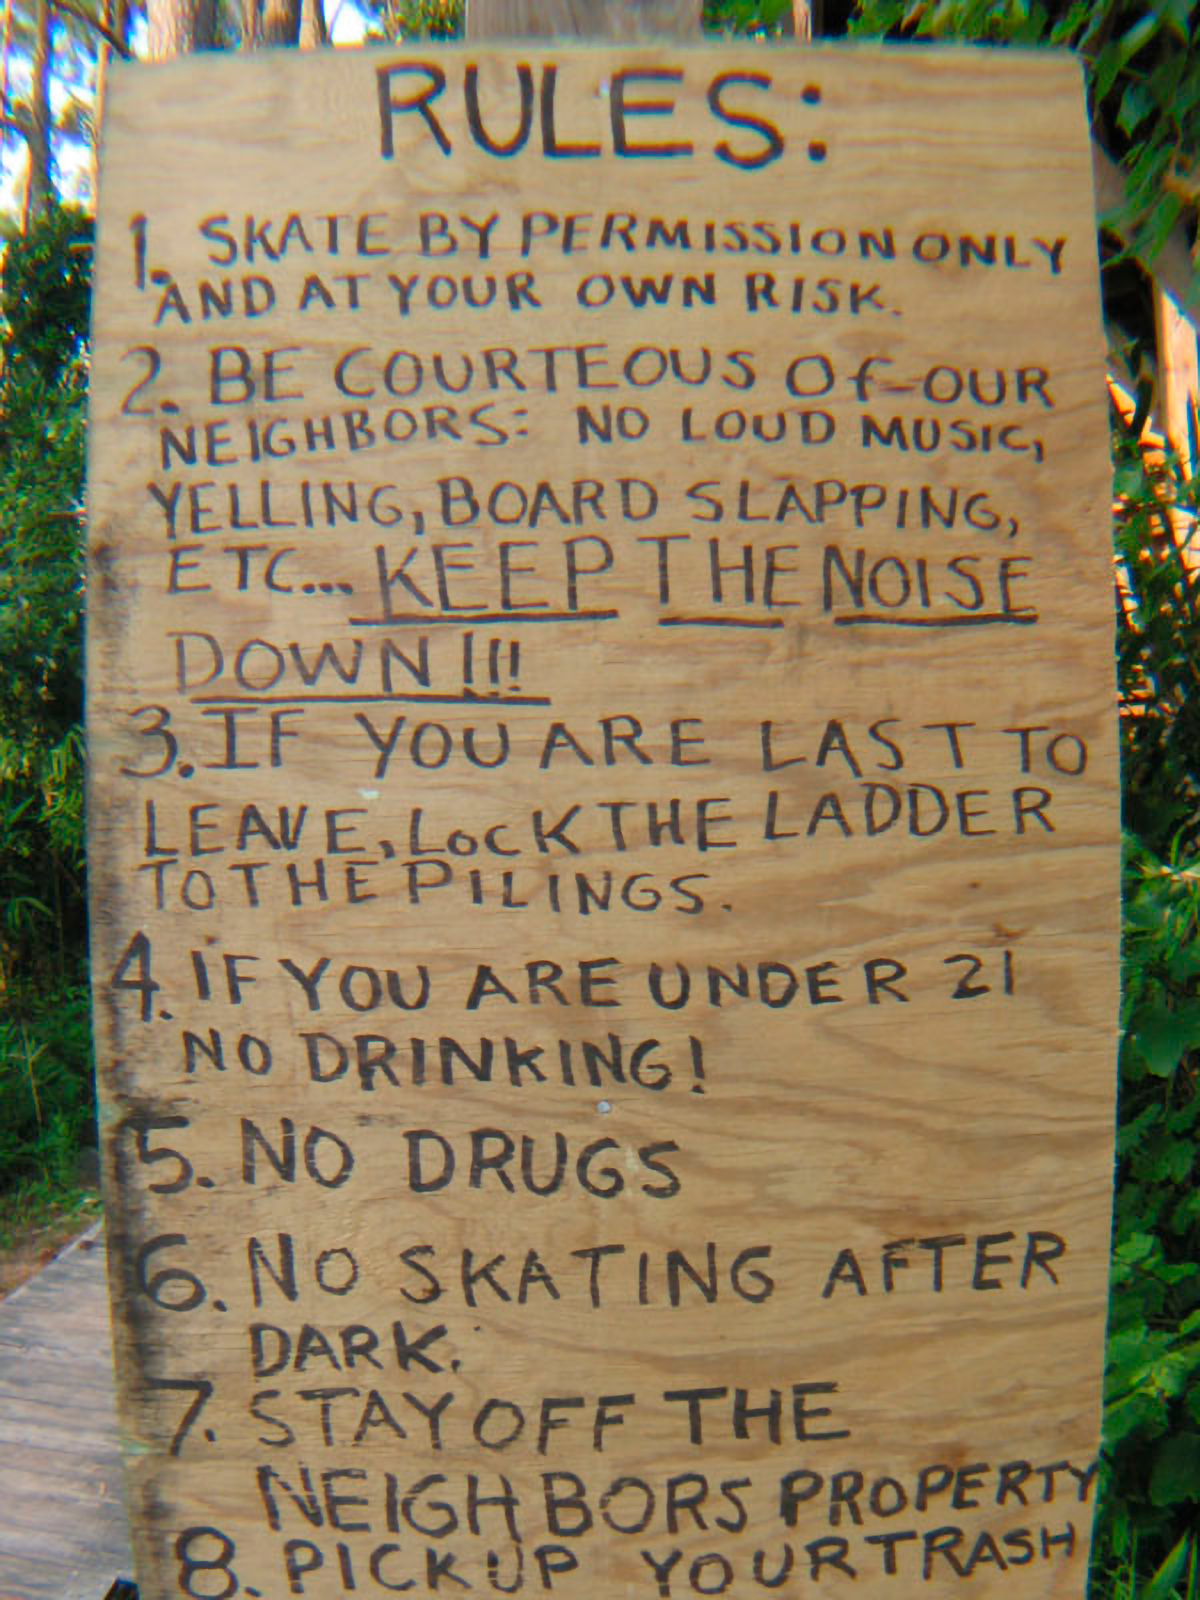 RULES:
1. SKATE BY PERMISSION ONLY
AND AT YOUR OWN RISK.
2. BE COURTEOUS Of OUR
NEIGHBORS: NO LOUD MUSIC,
YELLING, BOARD SLAPPING,
ETC... KEEP THE NOISE
DOWN!!!
3. IF YOU ARE LAST TO
LEAVE, LocK THE LADDER
TO THE PILINGS.
4. IF YOU ARE UNDER 21
NO DRINKING!
5. NO DRUGS
6. NO SKATING AFTER
DARK.
7. STAY OFF THE
NEIGHBORS PROPERTY
8. PICK UP YOUR TRASH